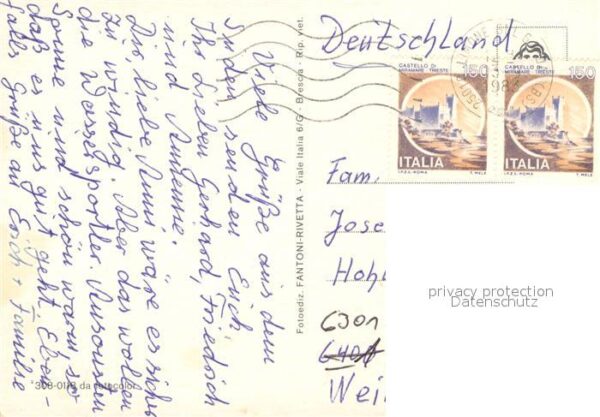 Viele Grüße aus dem
Süden senden Euch
Ihr Lieben Gerhard, Friedrich
und Annemie.
Die liebe Anni wäre es sicher
zu windig. Aber das wollen
die Wassersportler. Ansonsten
Sonne und schön warm so
daß es uns gut geht. Eben-
falls Grüße an Erich + Familie
308-01/B da fotocolor
Fotoediz. FANTONI-RIVETTA - Viale Italia 6/G - Brescia - Rip. viet.
Deutschland
CASTELLO DI MIRAMARE TRIESTE 150
ITALIA
I.P.Z.S.-ROMA T. MELE
CASTELLO DI MIRAMARE TRIESTE 150
ITALIA
I.P.Z.S.-ROMA T. MELE
Fam.
Jose
Hohl
6301
6401
Wei
privacy protection
Datenschutz